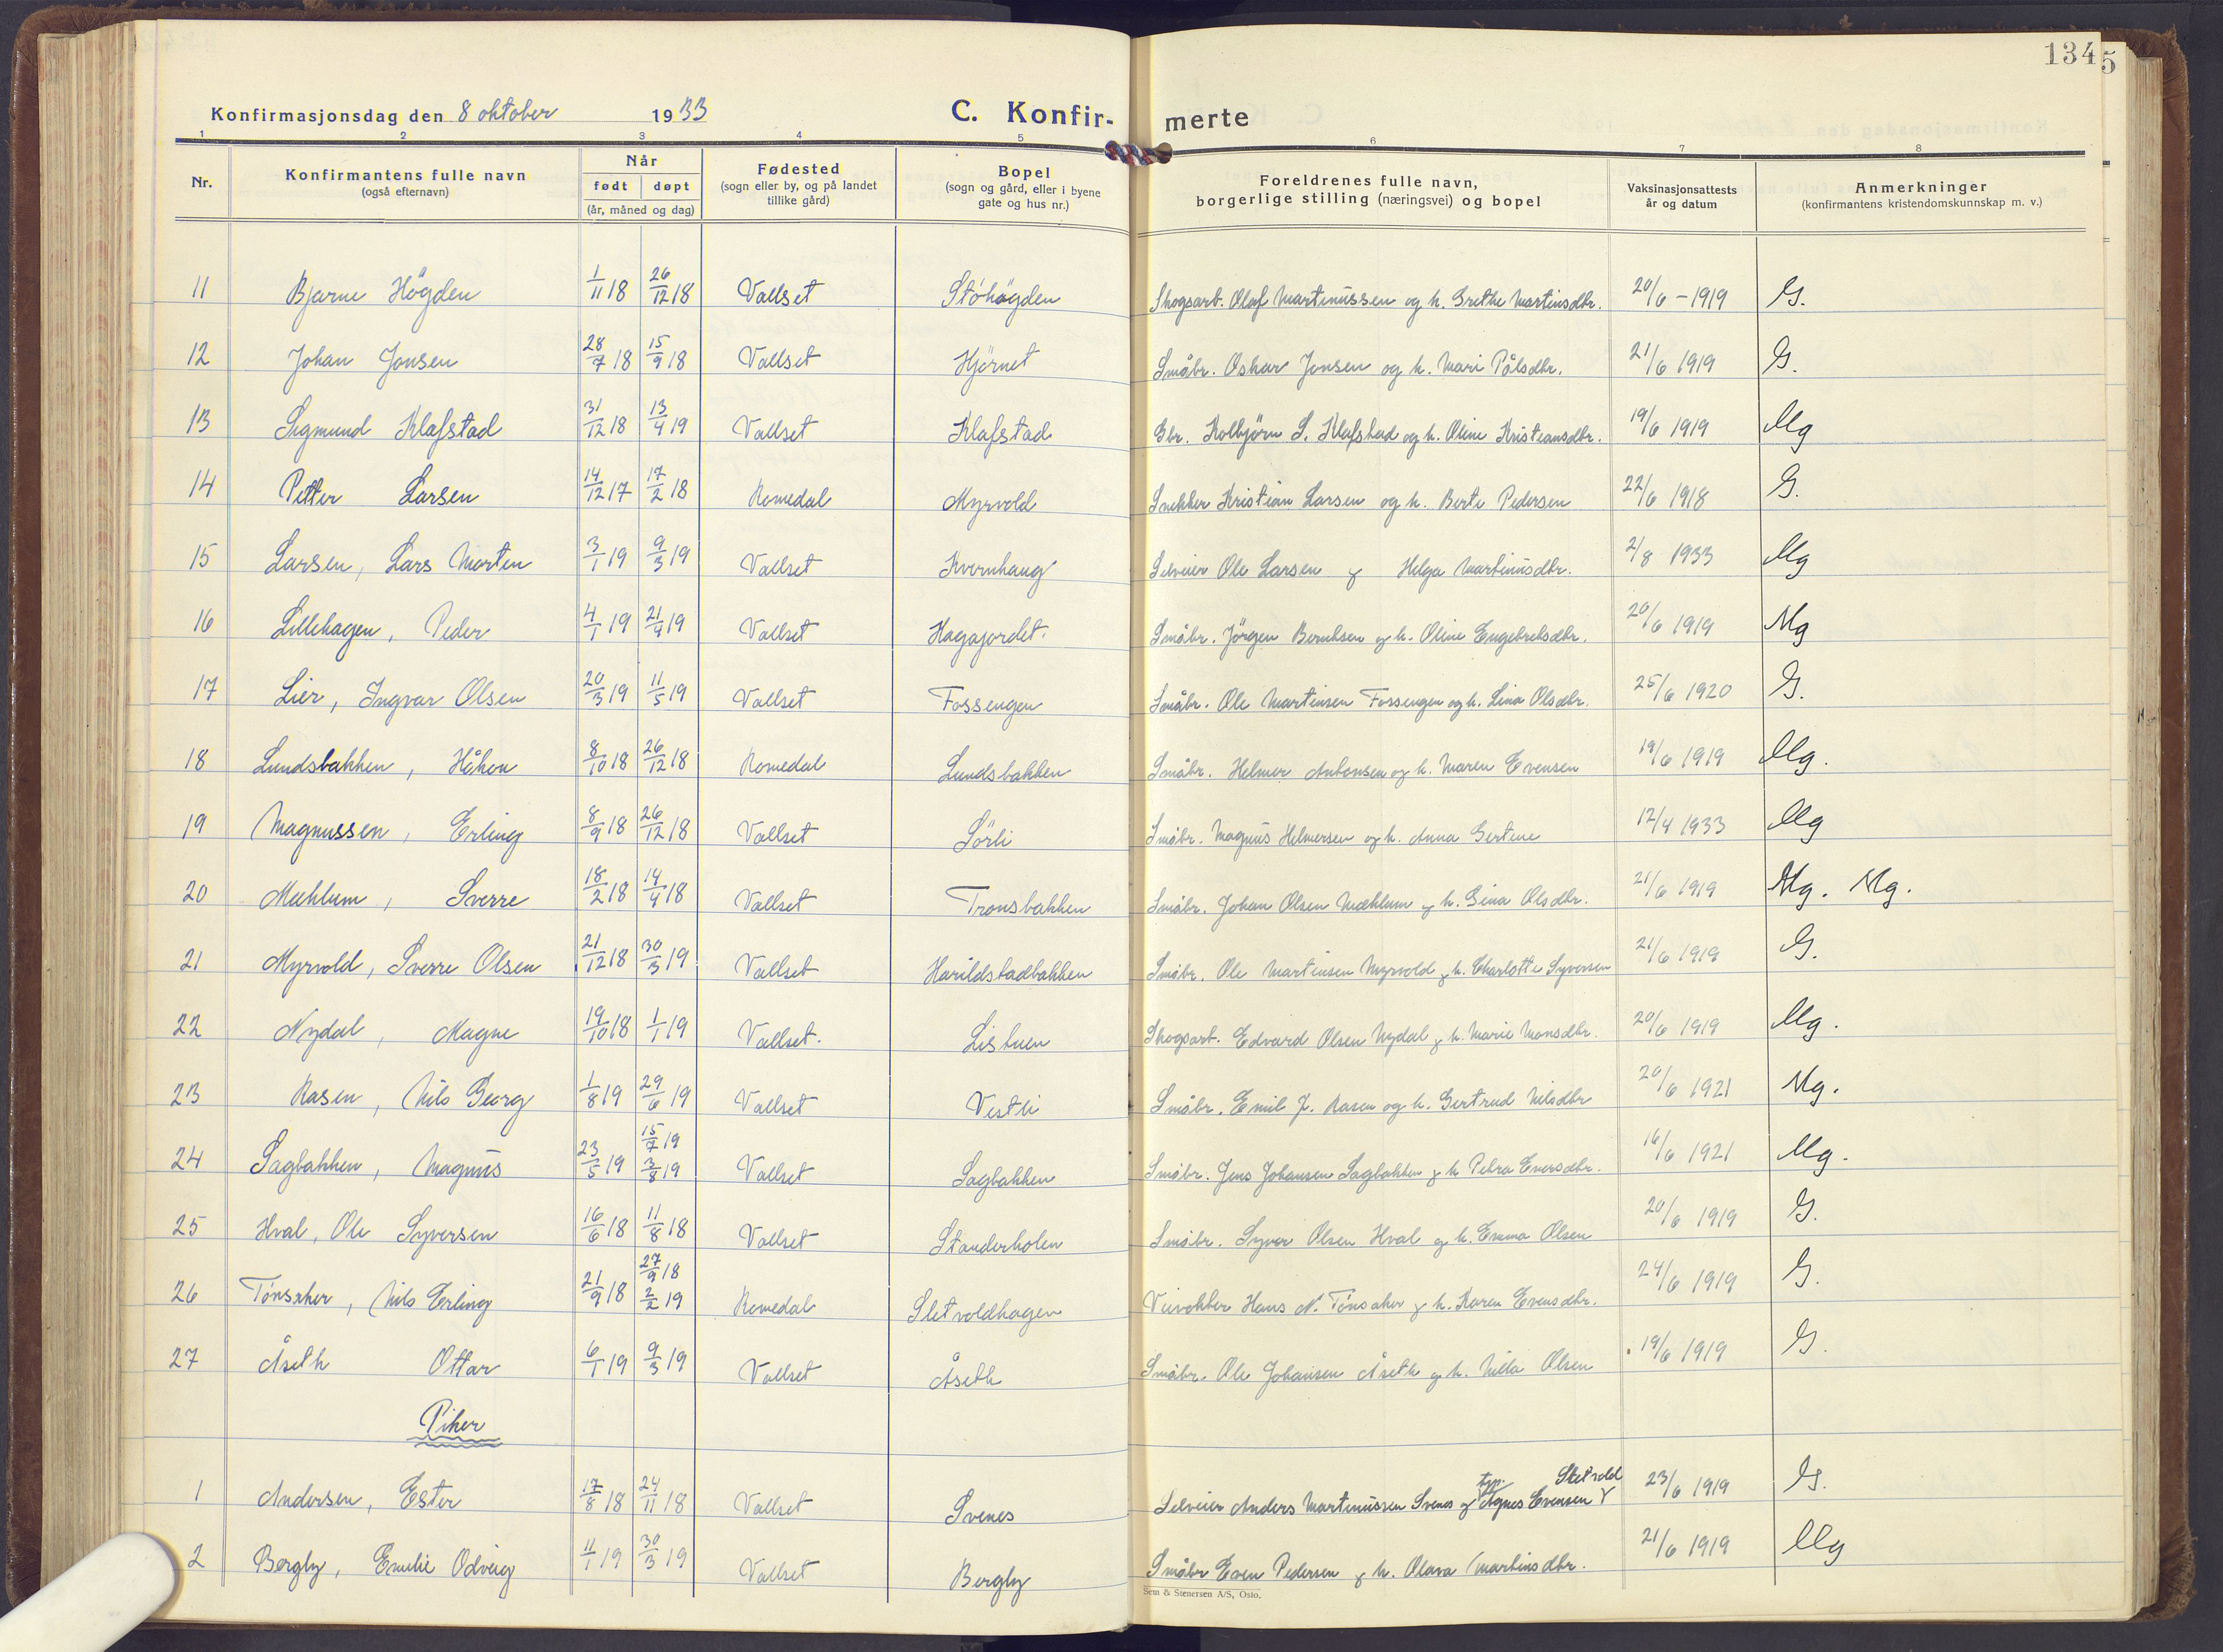 134
5
Konfirmasjonsdag den 8 oktober 1933 C. Konfir-merte
1 2 3 4 5 6 7 8
Nr. Konfirmantens fulle navn (også efternavn) Når født døpt (år, måned og dag) Fødested (sogn eller by, og på landet tillike gård) Bopel (sogn og gård, eller i byene gate og hus nr.) Foreldrenes fulle navn, borgerlige stilling (næringsvei) og bopel Vaksinasjonsattests år og datum Anmerkninger (konfirmantens kristendomskunnskap m. v.)
11 Bjarne Högden 1/11 18 26/12 18 Vallset Stóhögden Skogsarb. Olaf Martinussen og h. Grethe Martinsdtr. 20/6 - 1919 G.
12 Johan Jonsen 28/7 18 15/9 18 Vallset Hjörnet Småbr. Oskar Jonsen og h. Mari Pålsdtr. 21/6 1919 G.
13 Sigmund Klafstad 31/12 18 13/4 19 Vallset Klafstad Gbr. Kolbjörn S. Klafstad og h. Oline Kristiansdtr. 19/6 1919 Mg
14 Petter Larsen 14/12 17 17/2 18 Romedal Myrvold Snekker Kristian Larsen og h. Berte Pedersen 22/6 1918 G.
15 Larsen, Lars Morten 3/1 19 9/3 19 Vallset Kvernhaug Selveier Ole Larsen og Helga Martinusdtr. 2/8 1933 Mg
16 Lillehagen, Peder 4/1 19 21/4 19 Vallset Hagajordet. Småbr. Jörgen Berntsen og h. Oline Engebretsdtr. 20/6 1919 Mg
17 Lier, Ingvar Olsen 20/3 19 11/5 19 Vallset Fossengen Småbr. Ole Martinsen Fossengen og h. Lina Olsdtr. 25/6 1920 G.
18 Lundsbakken, Håkon 8/10 18 26/12 18 Romedal Lundsbakken Småbr. Helmer Antonsen og h. Maren Evensen 19/6 1919 Mg.
19 Magnussen, Erling 8/9 18 26/12 18 Vallset Sörli Småbr. Magnus Helmersen og h. Anna Gertine 12/4 1933 Mg
20 Mæhlum, Sverre 18/2 18 14/4 18 Vallset Tronsbakken Småbr. Johan Olsen Mæhlum og h. Gina Olsdtr. 21/6 1919 Mg. Mg.
21 Myrvold, Sverre Olsen 21/12 18 30/3 19 Vallset Harildstadbakken Småbr. Ole Martinsen Myrvold og h. Charlotte Syversen 21/6 1919 G.
22 Nydal, Magne 19/10 18 1/1 19 Vallset. Listuen Skogsarb. Edvard Olsen Nydal og h. Marie Monsdtr. 20/6 1919 Mg.
23 Rasen, Nils Georg 1/8 19 29/6 19 Vallset Vestli Småbr. Emil J. Rasen og h. Gertrud Nilsdtr 20/6 1921 Mg.
24 Sagbakken, Magnus 23/5 19 15/7 19 3/8 19 Vallset Sagbakken Småbr. Jens Johansen Sagbakken og h Petra Evensdtr. 16/6 1921 Mg.
25 Hval, Ole Syversen 16/6 18 11/8 18 Vallset Standerholen Småbr. Syver Olsen Hval og h. Emma Olsen 20/6 1919 G.
26 Tönsaker, Nils Erling 21/9 18 27/9 18 2/2 19 Romedal Sletvoldhagen Veivokter Hans N. Tönsaker og h. Karen Evensdtr. 24/6 1919 G.
27 Åseth Ottar 6/1 19 9/3 19 Vallset Åseth Småbr. Ole Johansen Åseth og h. Milla Olsen 19/6 1919 G.
Piker
1 Andersen, Ester 17/8 18 24/11 18 Vallset Svenes Selveier Anders Martinussen Svenes og tjp. Agnes Evensen Sletvold 23/6 1919 G.
2 Bergby, Emilie Odveig 11/1 19 30/3 19 Vallset Bergby Småbr Even Pedersen og h. Olava Martinsdtr. 21/6 1919 Mg
Sem & Stenersen A/S, Oslo.